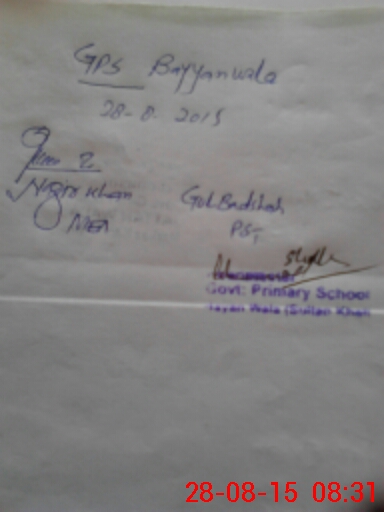 GPS Bayyanwala
28-8. 2015
Khan
MEA
Gul Badshah
PST
Headmaster
Govt: Primary School
Wala (Sultan Khan
28-08-15 08:31